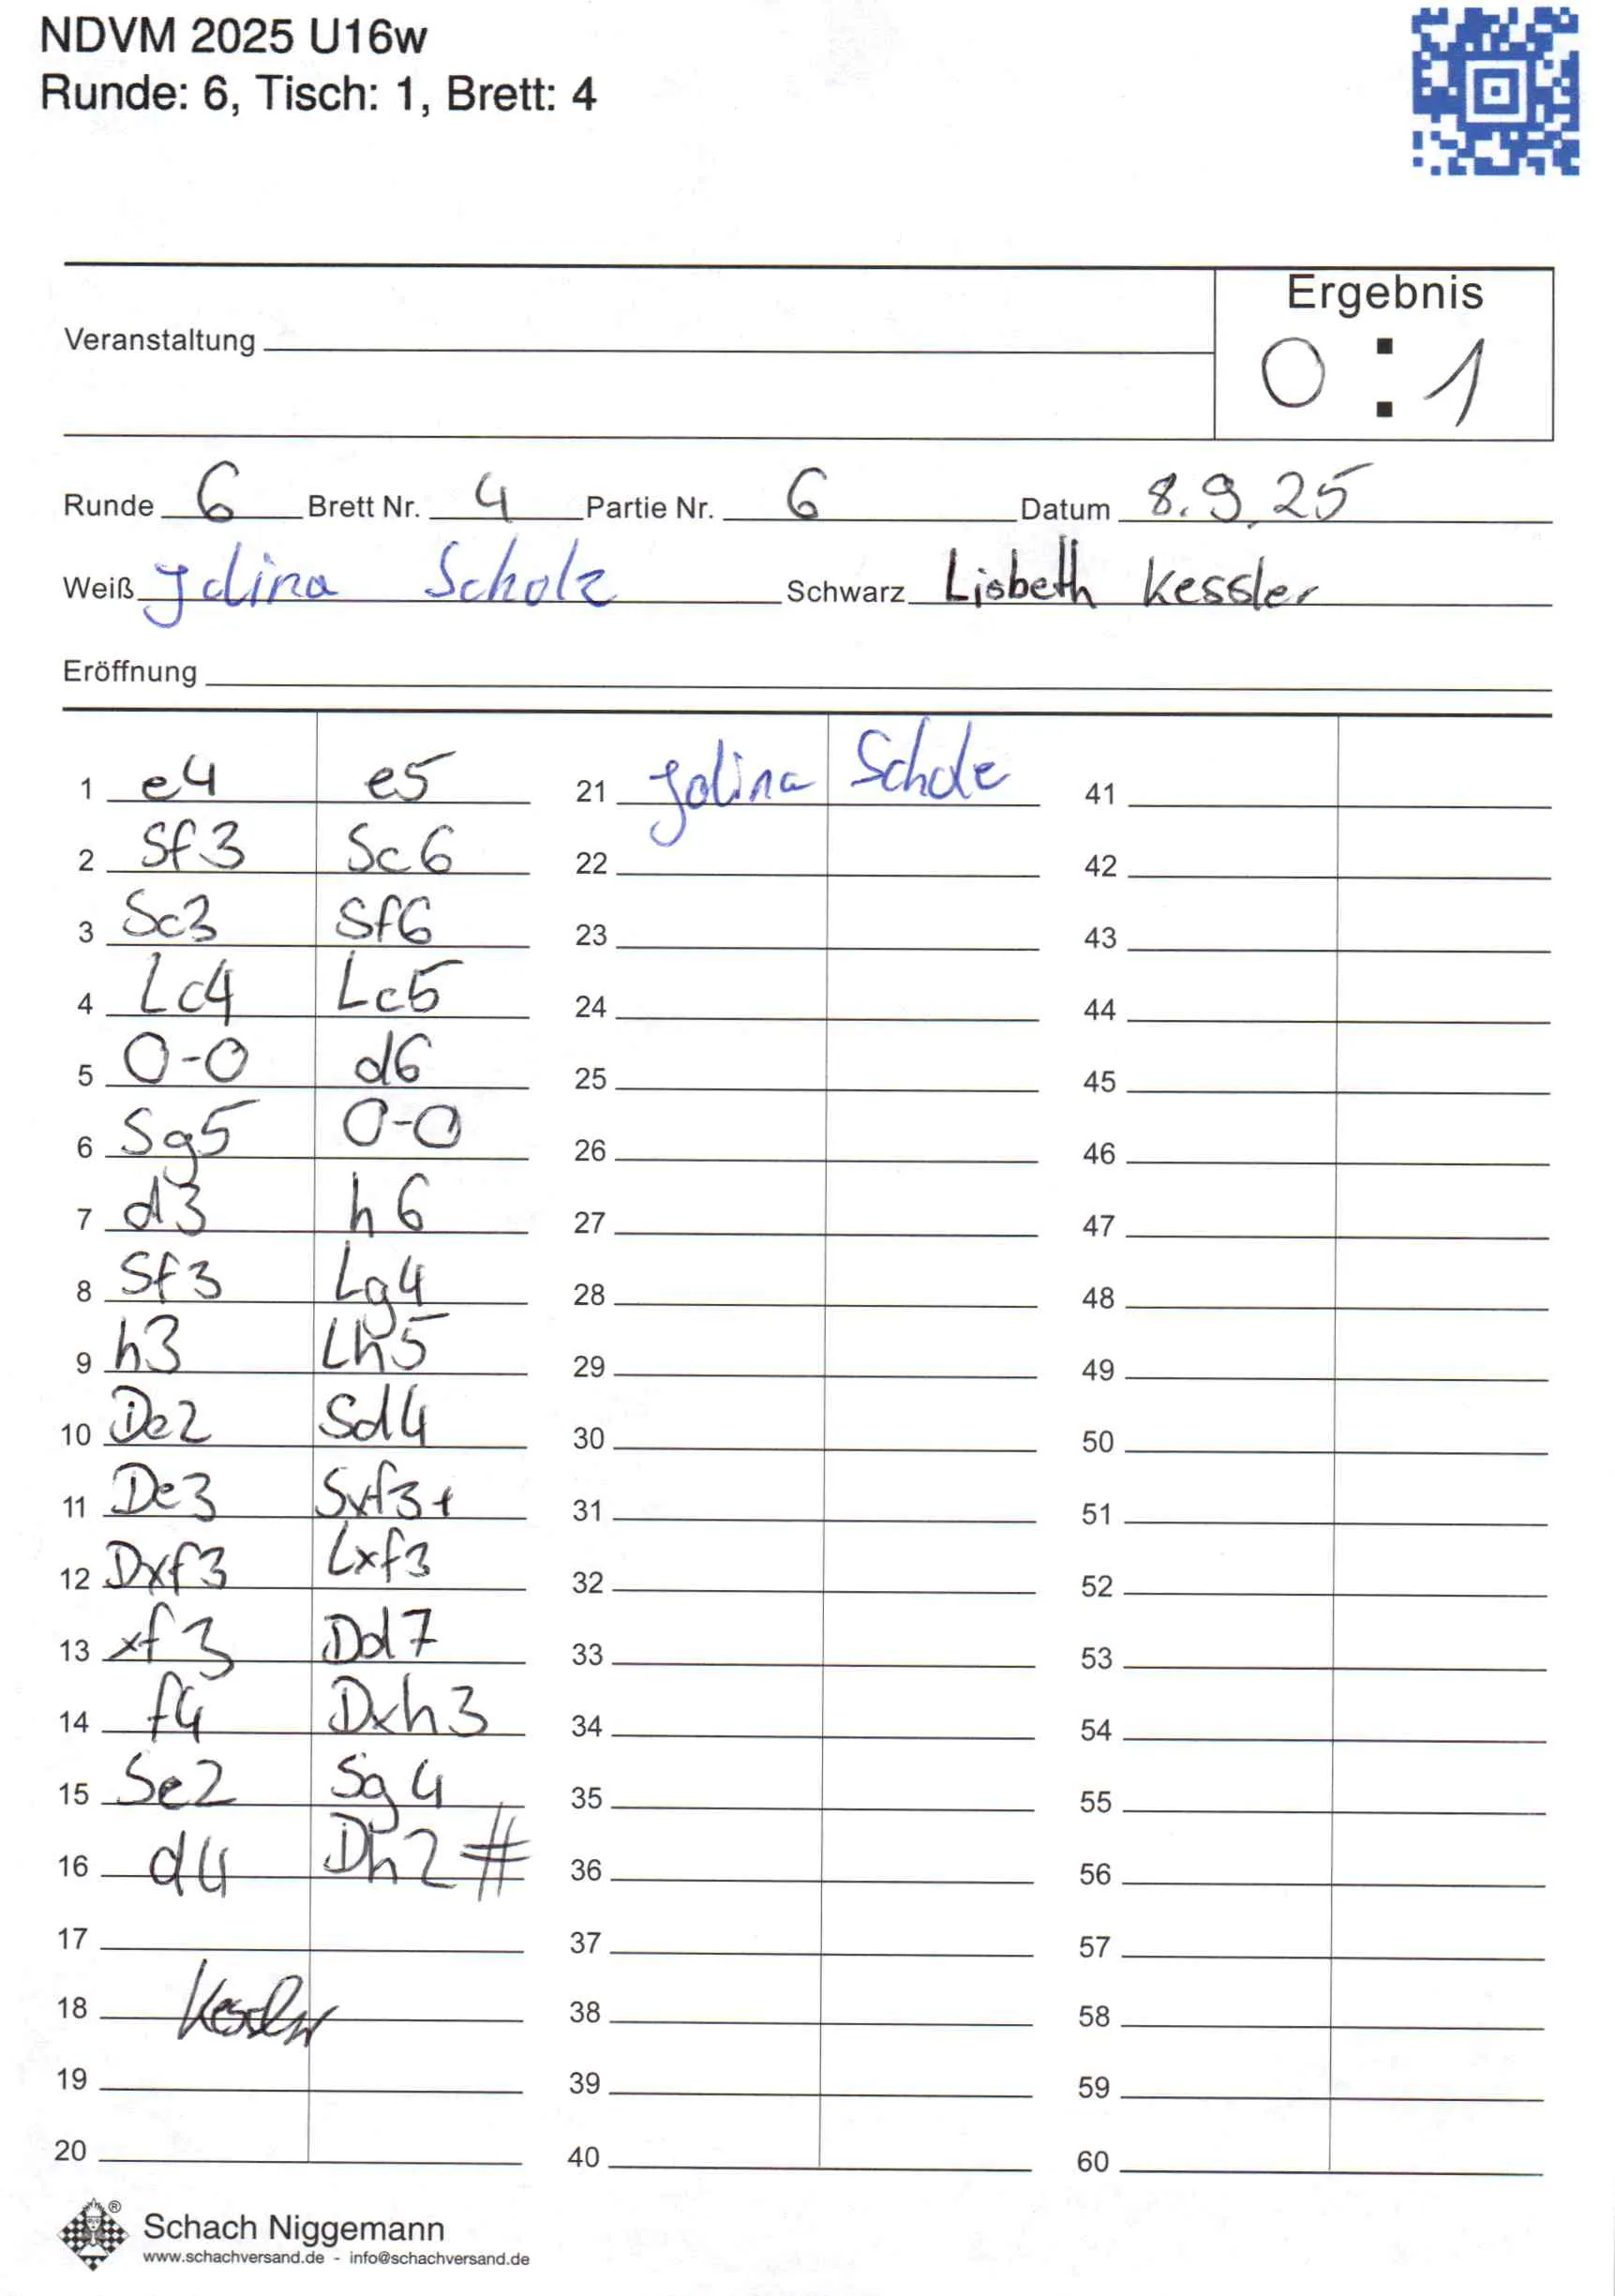 NDVM 2025 U16w
Runde: 6, Tisch: 1, Brett: 4
Ergebnis
Veranstaltung
0 : 1
Runde 6 Brett Nr. 4 Partie Nr. 6 Datum 8.9.25
Weiß Jolina Scholz Schwarz Lisbeth Kessler
Eröffnung
1 e4 e5 21 Jolina Scholz 41
2 Sf3 Sc6 22 42
3 Sc3 Sf6 23 43
4 Lc4 Lc5 24 44
5 0-0 d6 25 45
6 Sg5 0-0 26 46
7 d3 h6 27 47
8 Sf3 Lg4 28 48
9 h3 Lh5 29 49
10 De2 Sd4 30 50
11 De3 Sxf3+ 31 51
12 Dxf3 Lxf3 32 52
13 xf3 Dd7 33 53
14 f4 Dxh3 34 54
15 Se2 Sg4 35 55
16 d4 Dh2# 36 56
17 37 57
18 Kessler 38 58
19 39 59
20 40 60
® Schach Niggemann
www.schachversand.de - info@schachversand.de